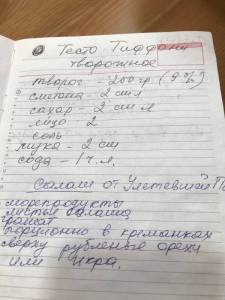 Тесто Тиффани
творожное
творог - 200 гр (9%)
сметана - 2 ст л
сахар - 2 ст л
яйцо 2
соль
мука - 2 ст
сода - 1 ч.л.
Салаты от Улетевшей
морепродукты
листья салата
гранат
порционно в креманках
сверху рубленые орехи
или икра.